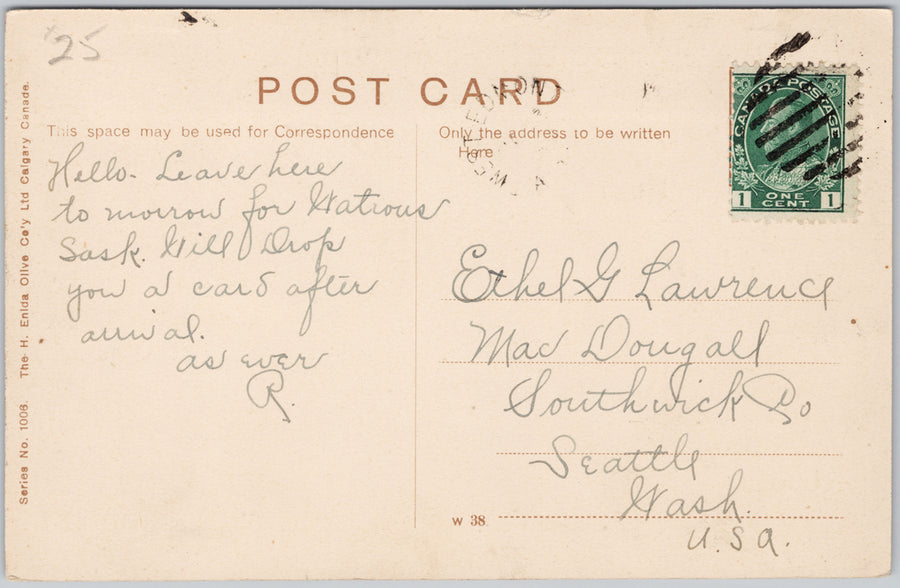 '25
POST CARD
This space may be used for Correspondence
Only the address to be written
Here
Hello. Leave here
to morrow for Watrous
Sask. Will Drop
you a card after
arrival.
as ever
R.
CANADA POSTAGE
1 ONE CENT 1
Ethel G Lawrence
Mac Dougall
Southwick Co
Seattle
Wash.
U.S.A.
W 38
Series No. 1006 The H. Enida Olive Co'y Ltd Calgary Canada.